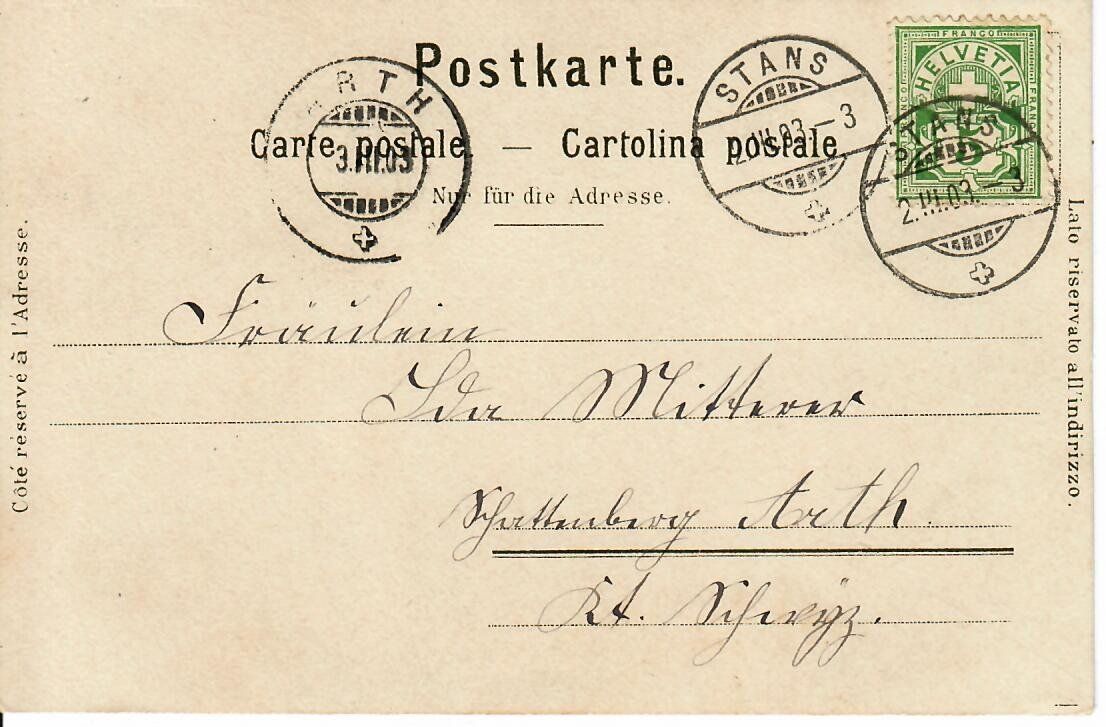 Postkarte.
Carte postale — Cartolina postale
Nur für die Adresse.
ARTH
3.III.03
STANS
2.III.03.–3
FRANCO
HELVETIA
FRANCO
FRANCO
5
STANS
2.III.03.–3
Côté réservé à l'Adresse.
Lato riservato all'indirizzo.
Fräulein
Ida Mitterer
Schattenberg Arth.
Kt. Schwÿz.